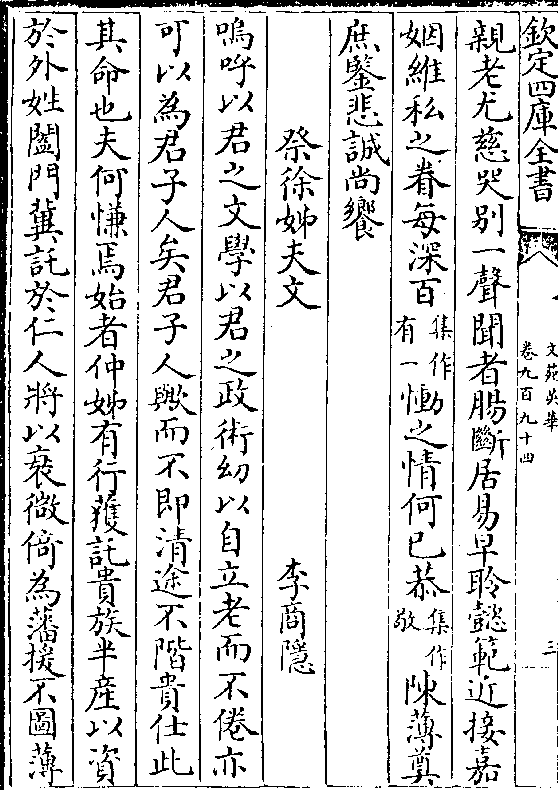 欽定四庫全書
文苑英華
卷九百九十四
三
親老尤慈哭別一聲聞者腸斷居易早聆懿範近接嘉
姻維私之眷每深百集作有一慟之情何已恭集作敬陳薄奠
庶鑒悲誠尚饗
祭徐姊夫文 李商隱
嗚呼以君之文學以君之政術幼以自立老而不倦亦
可以為君子人矣君子人歟而不即清途不階貴仕此
其命也夫何慊焉始者仲姊有行獲託貴族半産以資
於外姓闔門冀託於仁人將以衰微倚為藩援不圖薄